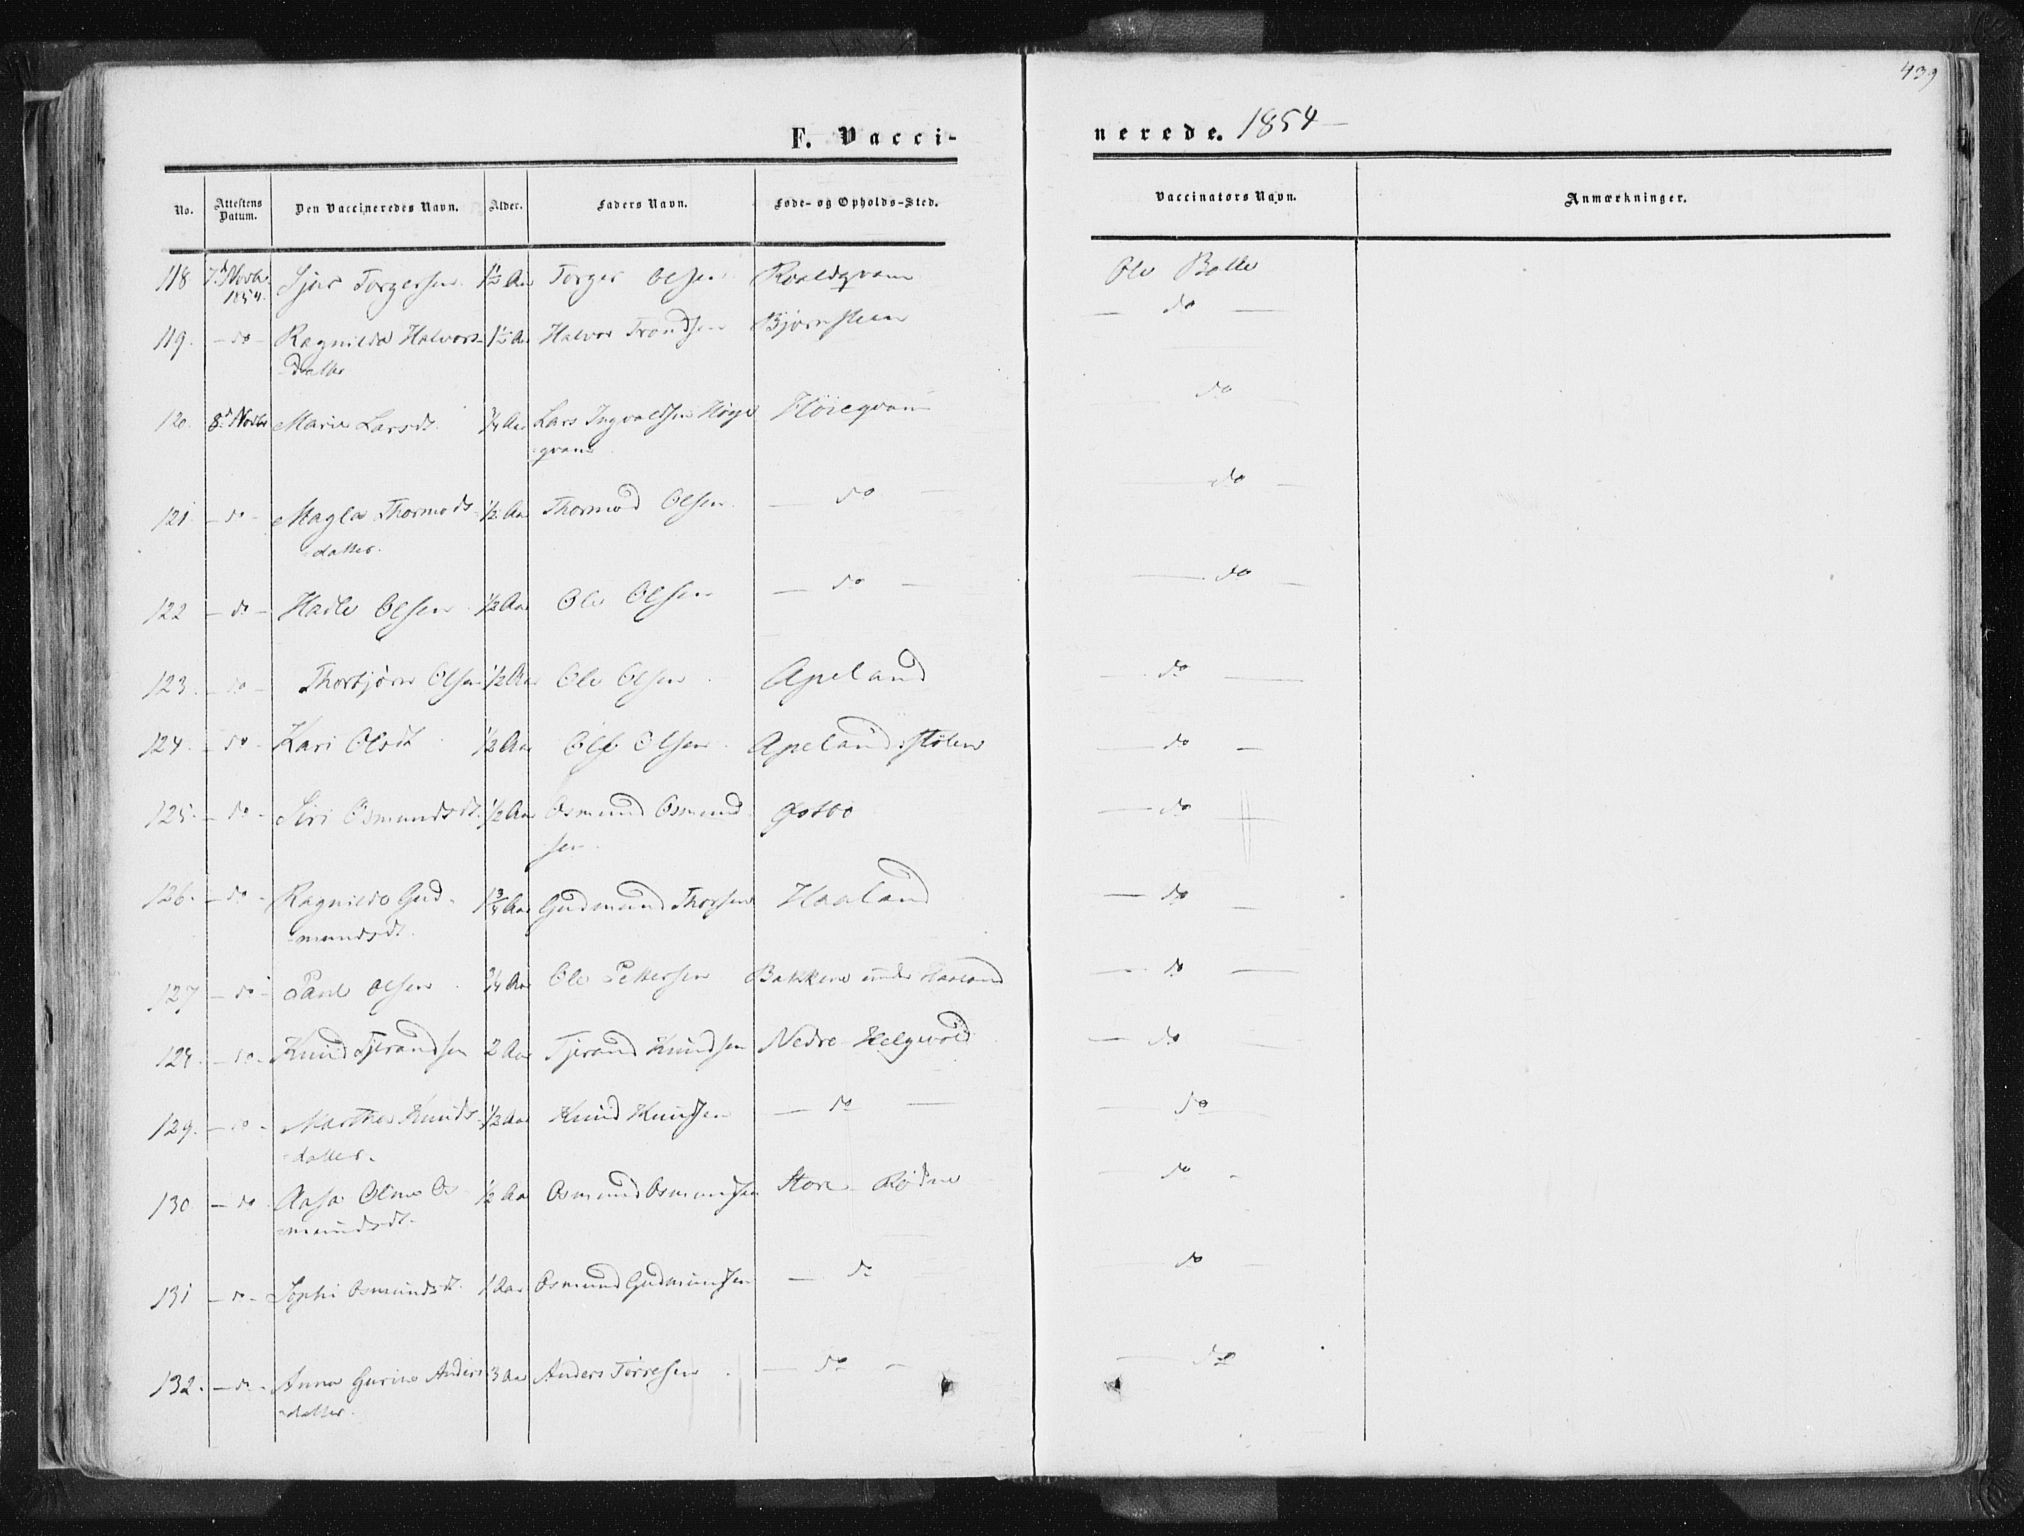 439
F. Vacci-
nerede. 1854
No.
Attestens Datum.
Den Vaccineredes Navn.
Alder.
Faders Navn.
Føde- og Opholds-Sted.
Vaccinators Navn.
Anmærkninger.
118 7d Novbr Sjur Torgersen 1½ Aar Torger Olsen Roaldqvam Ole Bolle
1854.
119. - do - Ragnilda Halvors- 1½ Aar Halvor Trondsen Bjørnsteen — do —
datter
120. 8d Novbr Marie Larsdt. ¾ Aar Lars Ingvaldsen Høge Høiegvam — do —
qvam
121 - do - Magla Thormods- ½ Aar Thormod Olsen — do — — do —
datter.
122 - do - Hadle Olsen ½ Aar Ole Olsen — do — — do —
123. - do - Thorbjørn Olsen ½ Aar Ole Olsen Apeland — do —
124. - do - Kari Olsdt ½ Aar Ole Olsen Apelandsstølen — do —
125. - do - Siri Osmundsdt. ½ Aar Osmund Osmund Østbø — do —
sen
126. - do - Ragnilda Gud- 1¾ Aar Gudmund Thorsen Haaland — do —
mundsdt.
127 - do - Paul Olsen ¾ Aar Ole Pettersen Bakken under Haaland — do —
128. - do - Knud Tjerandsen 2 Aar Tjerand Knudsen Nedre Helgevold — do —
129. - do - Marthe Knuds- ½ Aar Knud Knudsen — do — — do —
datter.
130. - do Aasa Oline Os ½ Aar Osmund Osmundsen Store Rødne — do -
mundsdt.
131 - do - Sophi Osmundsdt. 1 Aar Osmund Gudmundsen — do — do -
132. - do - Anna Gurine Anders 3 Aar Anders Torresen — do — — do
datter.